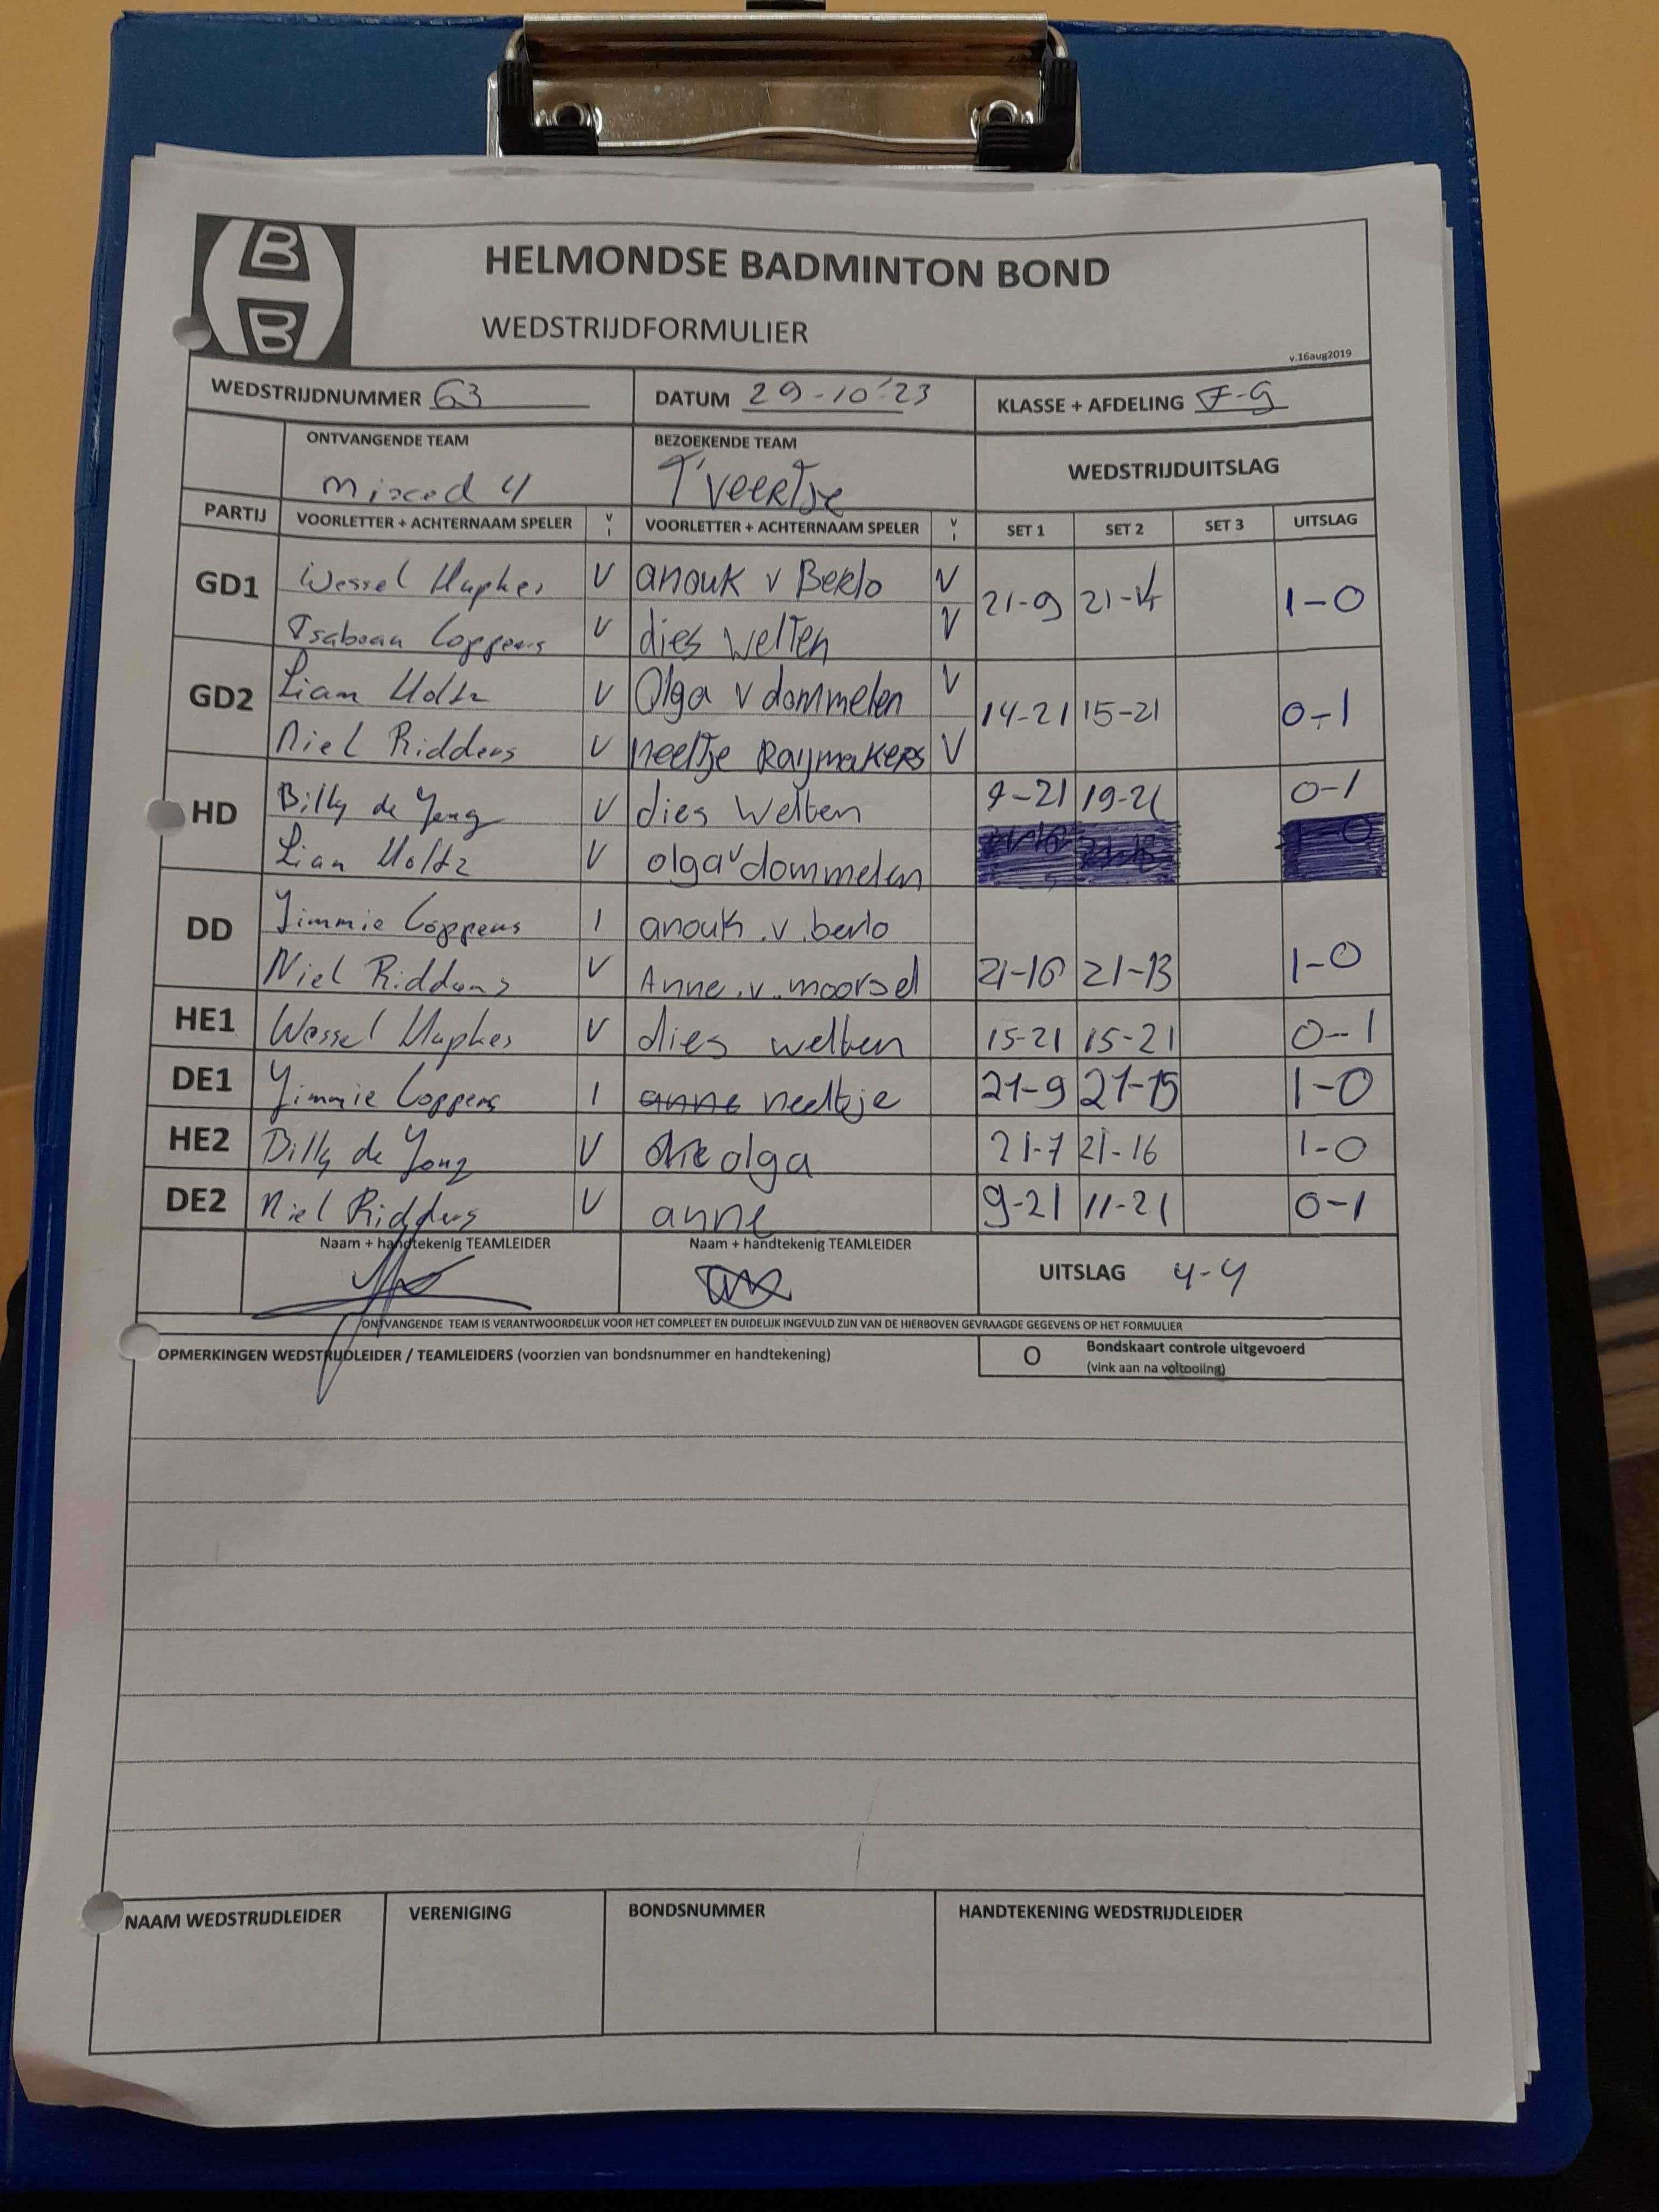 B
B
HELMONDSE BADMINTON BOND
WEDSTRIJDFORMULIER
v.16aug2019
WEDSTRIJDNUMMER 63 DATUM 29-10-'23 KLASSE + AFDELING F-G
ONTVANGENDE TEAM BEZOEKENDE TEAM WEDSTRIJDUITSLAG
mixed 4 T'veertje
PARTIJ VOORLETTER + ACHTERNAAM SPELER V I VOORLETTER + ACHTERNAAM SPELER V I SET 1 SET 2 SET 3 UITSLAG
GD1 Wessel Hupkes V anouk v Berlo V 21-9 21-14 1-0
Coppens V dies welten V
GD2 Liam Holtz V Olga v dommelen V 14-21 15-21 0-1
Niel Ridders V neeltje Raijmakers V
HD Billy de Jong V dies Welten 9-21 19-21 0-1
Liam Holtz V olga v dommelen
DD Jimmie Coppens I anouk .v. berlo
Niel Ridders V Anne .v. moorsel 21-16 21-13 1-0
HE1 Wessel Hupkes V dies welten 15-21 15-21 0-1
DE1 Jimmie Coppens I anne neeltje 21-9 21-15 1-0
HE2 Billy de Jong V olga 21-7 21-16 1-0
DE2 Niel Ridders V anne 9-21 11-21 0-1
Naam + handtekenig TEAMLEIDER Naam + handtekenig TEAMLEIDER UITSLAG 4-4
ONTVANGENDE TEAM IS VERANTWOORDELIJK VOOR HET COMPLEET EN DUIDELIJK INGEVULD ZIJN VAN DE HIERBOVEN GEVRAAGDE GEGEVENS OP HET FORMULIER
OPMERKINGEN WEDSTRIJDLEIDER / TEAMLEIDERS (voorzien van bondsnummer en handtekening) O Bondskaart controle uitgevoerd
(vink aan na voltooiing)
NAAM WEDSTRIJDLEIDER VERENIGING BONDSNUMMER HANDTEKENING WEDSTRIJDLEIDER